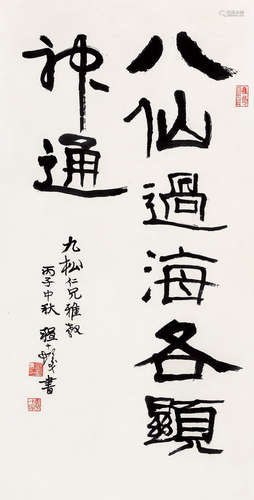 八仙過海各顯
神通
九松仁兄雅教
丙子中秋 書